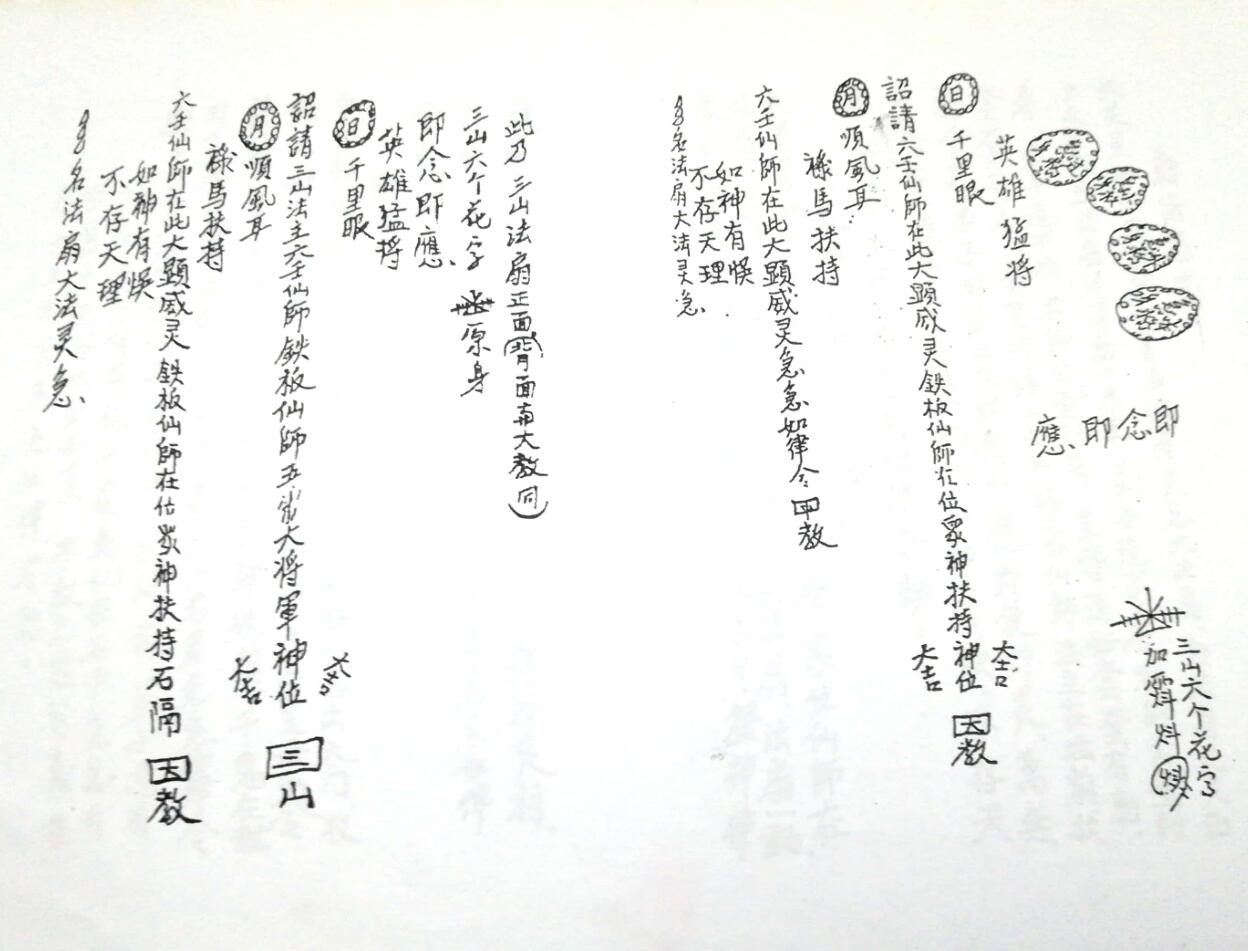 三山六个花字
加
即念即應
英雄猛将
日 千里眼
大吉
詔請六壬仙師在此大顯威灵鉄板仙師在位眾神扶持神位 教
大吉
月 順風耳
祿馬扶持
六壬仙師在此大顯威灵急急如律令 教
如神有悞
不存天理
名法扇大法灵急
此乃三山法扇正面(背面南大教同)
三山六个花字 原身
即念即應
英雄猛将
日 千里眼
大吉
詔請三山法主六壬仙師鉄板仙師五省大将軍神位 三山
大吉
月 順風耳
祿馬扶持
六壬仙師在此大顯威灵鉄板仙師在位眾神扶持石隔 教
如神有悞
不存天理
名法扇大法灵急